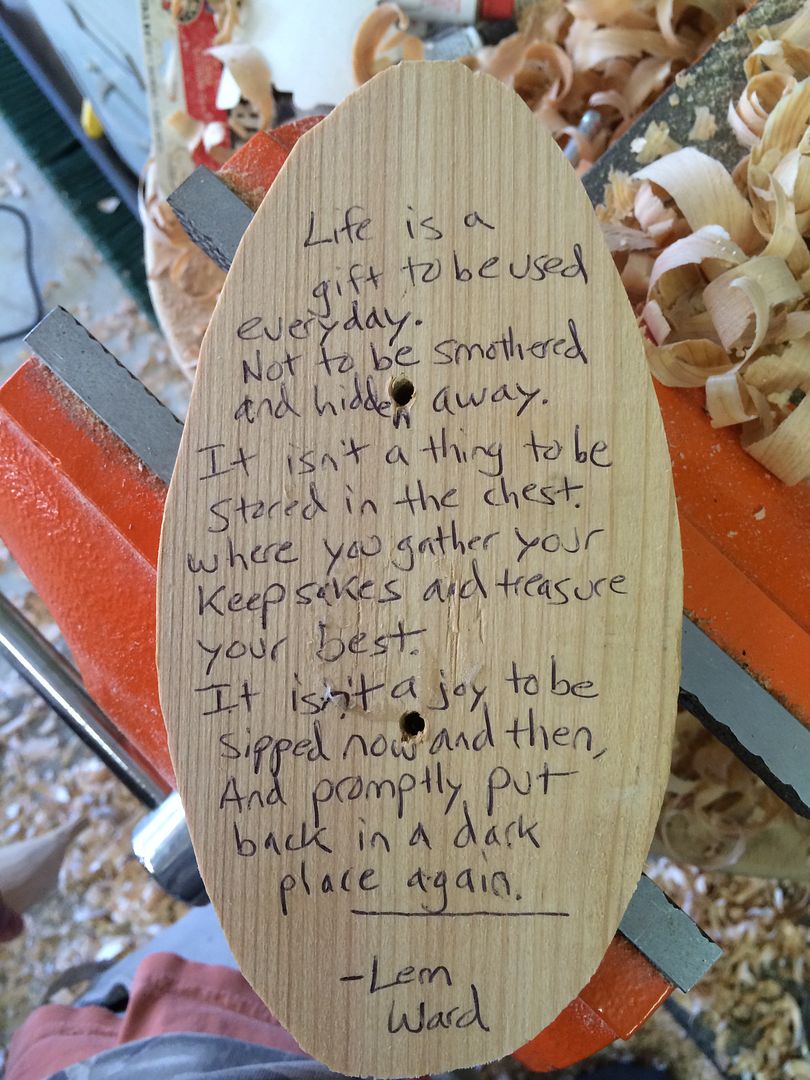 Life is a
gift to be used
everyday.
Not to be smothered
and hidden away.
It isn't a thing to be
stored in the chest.
where you gather your
Keepsakes and treasure
your best.
It isn't a joy to be
sipped now and then,
And promptly put
back in a dark
place again.
-Lem
Ward